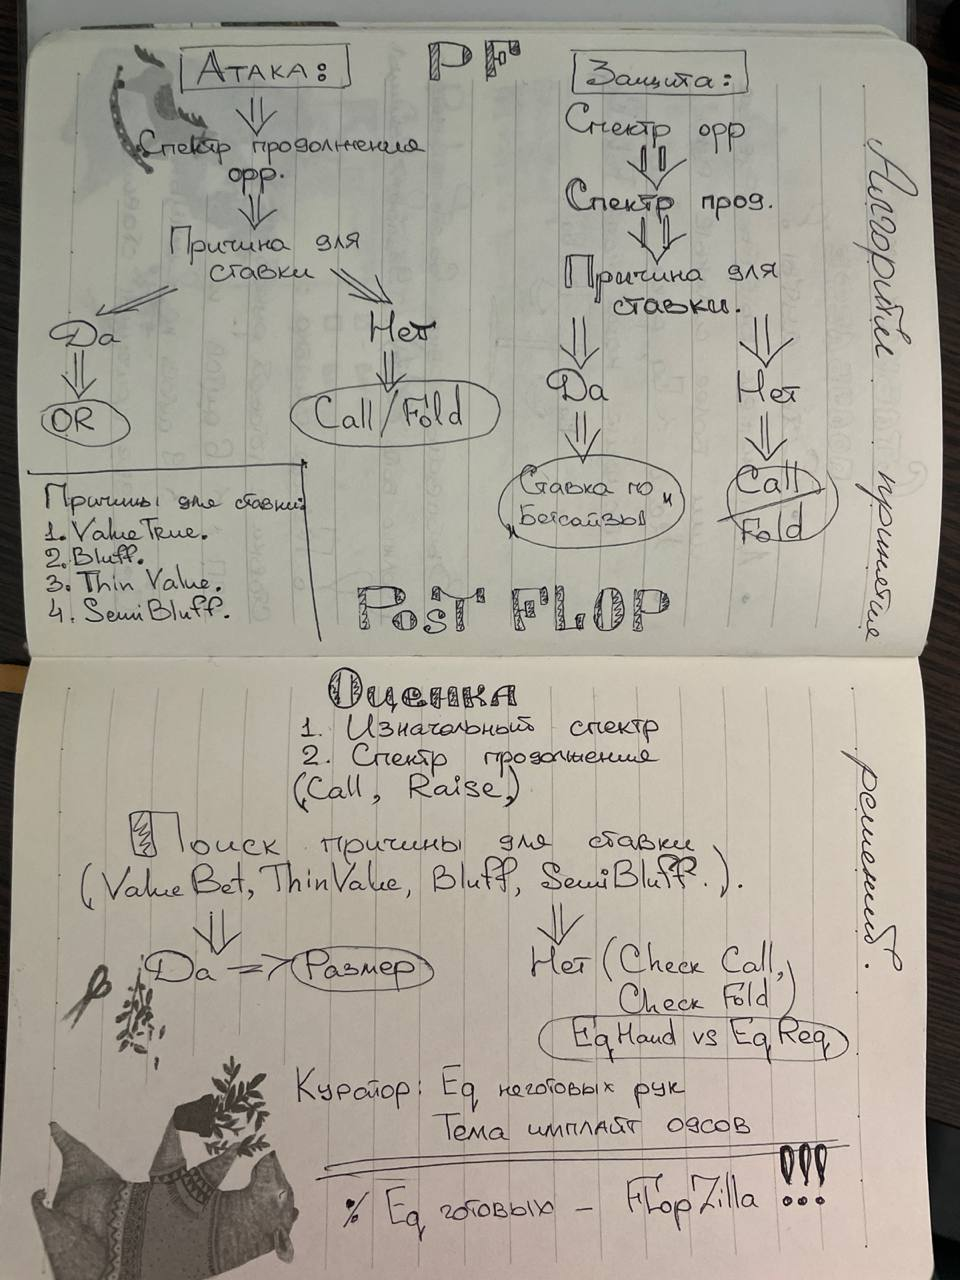 PF
Атака:
Спектр продолжения
opp.
Причина для
ставки
Да
Нет
OR
Call/Fold
Защита:
Спектр opp
Спектр прод.
Причина для
ставки.
Да
Нет
Ставка по
"Бетсайзы"
Call
Fold
Причины для ставки:
1. Value True.
2. Bluff.
3. Thin Value.
4. SemiBluff.
Алгоритм принятия решений.
PoST FLOP
Оценка
1. Изначальный спектр
2. Спектр продолжения
(Call, Raise,)
Поиск причины для ставки
(Value Bet, ThinValue, Bluff, SemiBluff.).
Да => Размер
Нет (Check Call,
Check Fold)
Eq Hand vs Eq Req
Куратор: Eq неготовых рук
Тема имплайт одсов
% Eq готовых - FLopZilla !!!